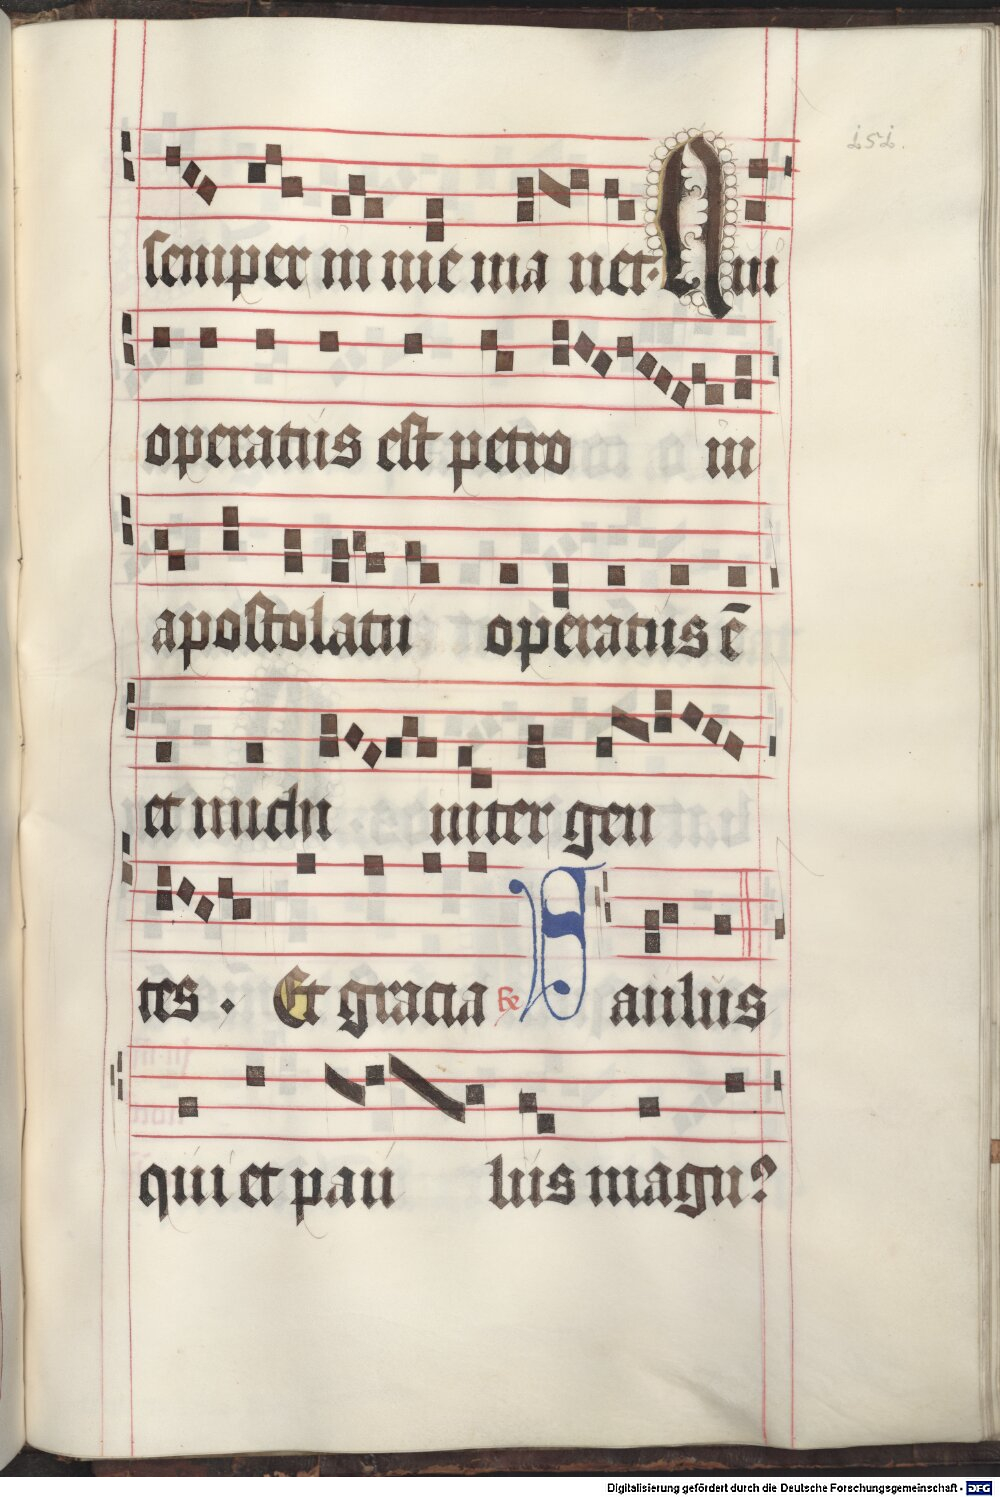 151.
semper in me ma net. Qui
operatus est petro in
apostolatu operatus ē
et michi inter gen
tes. Et gracia R̃ Paulus
qui et pau lus magn?
Digitalisierung gefördert durch die Deutsche Forschungsgemeinschaft - DFG